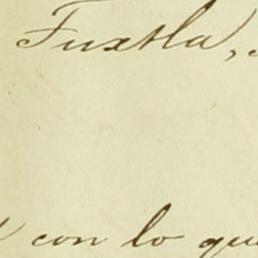 Tuxtla,
con lo que